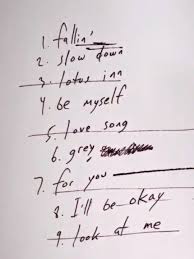 1. fallin'
2. slow down
3. lotus inn
4. be myself
5. love song
6. grey
7. for you
8. I'll be okay
9. look at me